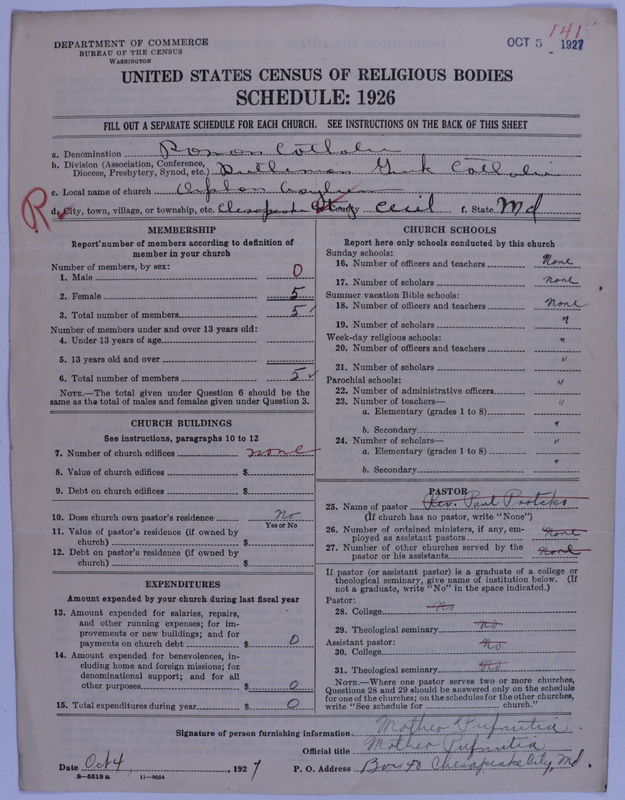 141
DEPARTMENT OF COMMERCE
BUREAU OF THE CENSUS
WASHINGTON
OCT 5 1927
UNITED STATES CENSUS OF RELIGIOUS BODIES
SCHEDULE: 1926
FILL OUT A SEPARATE SCHEDULE FOR EACH CHURCH. SEE INSTRUCTIONS ON THE BACK OF THIS SHEET
a. Denomination Roman Catholic
b. Division (Association, Conference, Diocese, Presbytery, Synod, etc.) Ruthenian Greek Catholic
c. Local name of church Orphan Asylum
R d. City, town, village, or township, etc. Chesapeake City Cecil f. State Md
MEMBERSHIP
Report number of members according to definition of member in your church
Number of members, by sex:
1. Male 0
2. Female 5
3. Total number of members 5
Number of members under and over 13 years old:
4. Under 13 years of age
5. 13 years old and over
6. Total number of members 5
NOTE.—The total given under Question 6 should be the same as the total of males and females given under Question 3.
CHURCH BUILDINGS
See instructions, paragraphs 10 to 12
7. Number of church edifices none
8. Value of church edifices $
9. Debt on church edifices $
10. Does church own pastor's residence No
Yes or No
11. Value of pastor's residence (if owned by church) $
12. Debt on pastor's residence (if owned by church) $
EXPENDITURES
Amount expended by your church during last fiscal year
13. Amount expended for salaries, repairs, and other running expenses; for improvements or new buildings; and for payments on church debt $ 0
14. Amount expended for benevolences, including home and foreign missions; for denominational support; and for all other purposes $ 0
15. Total expenditures during year $ 0
CHURCH SCHOOLS
Report here only schools conducted by this church
Sunday schools:
16. Number of officers and teachers None
17. Number of scholars none
Summer vacation Bible schools:
18. Number of officers and teachers None
19. Number of scholars "
Week-day religious schools: "
20. Number of officers and teachers
21. Number of scholars "
Parochial schools: "
22. Number of administrative officers
23. Number of teachers— "
a. Elementary (grades 1 to 8)
b. Secondary "
24. Number of scholars— "
a. Elementary (grades 1 to 8)
b. Secondary "
PASTOR
25. Name of pastor Rev. Paul
(If church has no pastor, write "None")
26. Number of ordained ministers, if any, employed as assistant pastors none
27. Number of other churches served by the pastor or his assistants none
If pastor (or assistant pastor) is a graduate of a college or theological seminary, give name of institution below. (If not a graduate, write "No" in the space indicated.)
Pastor:
28. College No
29. Theological seminary No
Assistant pastor:
30. College No
31. Theological seminary No
NOTE.—Where one pastor serves two or more churches, Questions 28 and 29 should be answered only on the schedule for one of the churches; on the schedules for the other churches, write "See schedule for church."
Signature of person furnishing information Mother
Official title Mother
Date Oct 4, 1927 P. O. Address Chesapeake City, Md
8—5518 a 11—9054